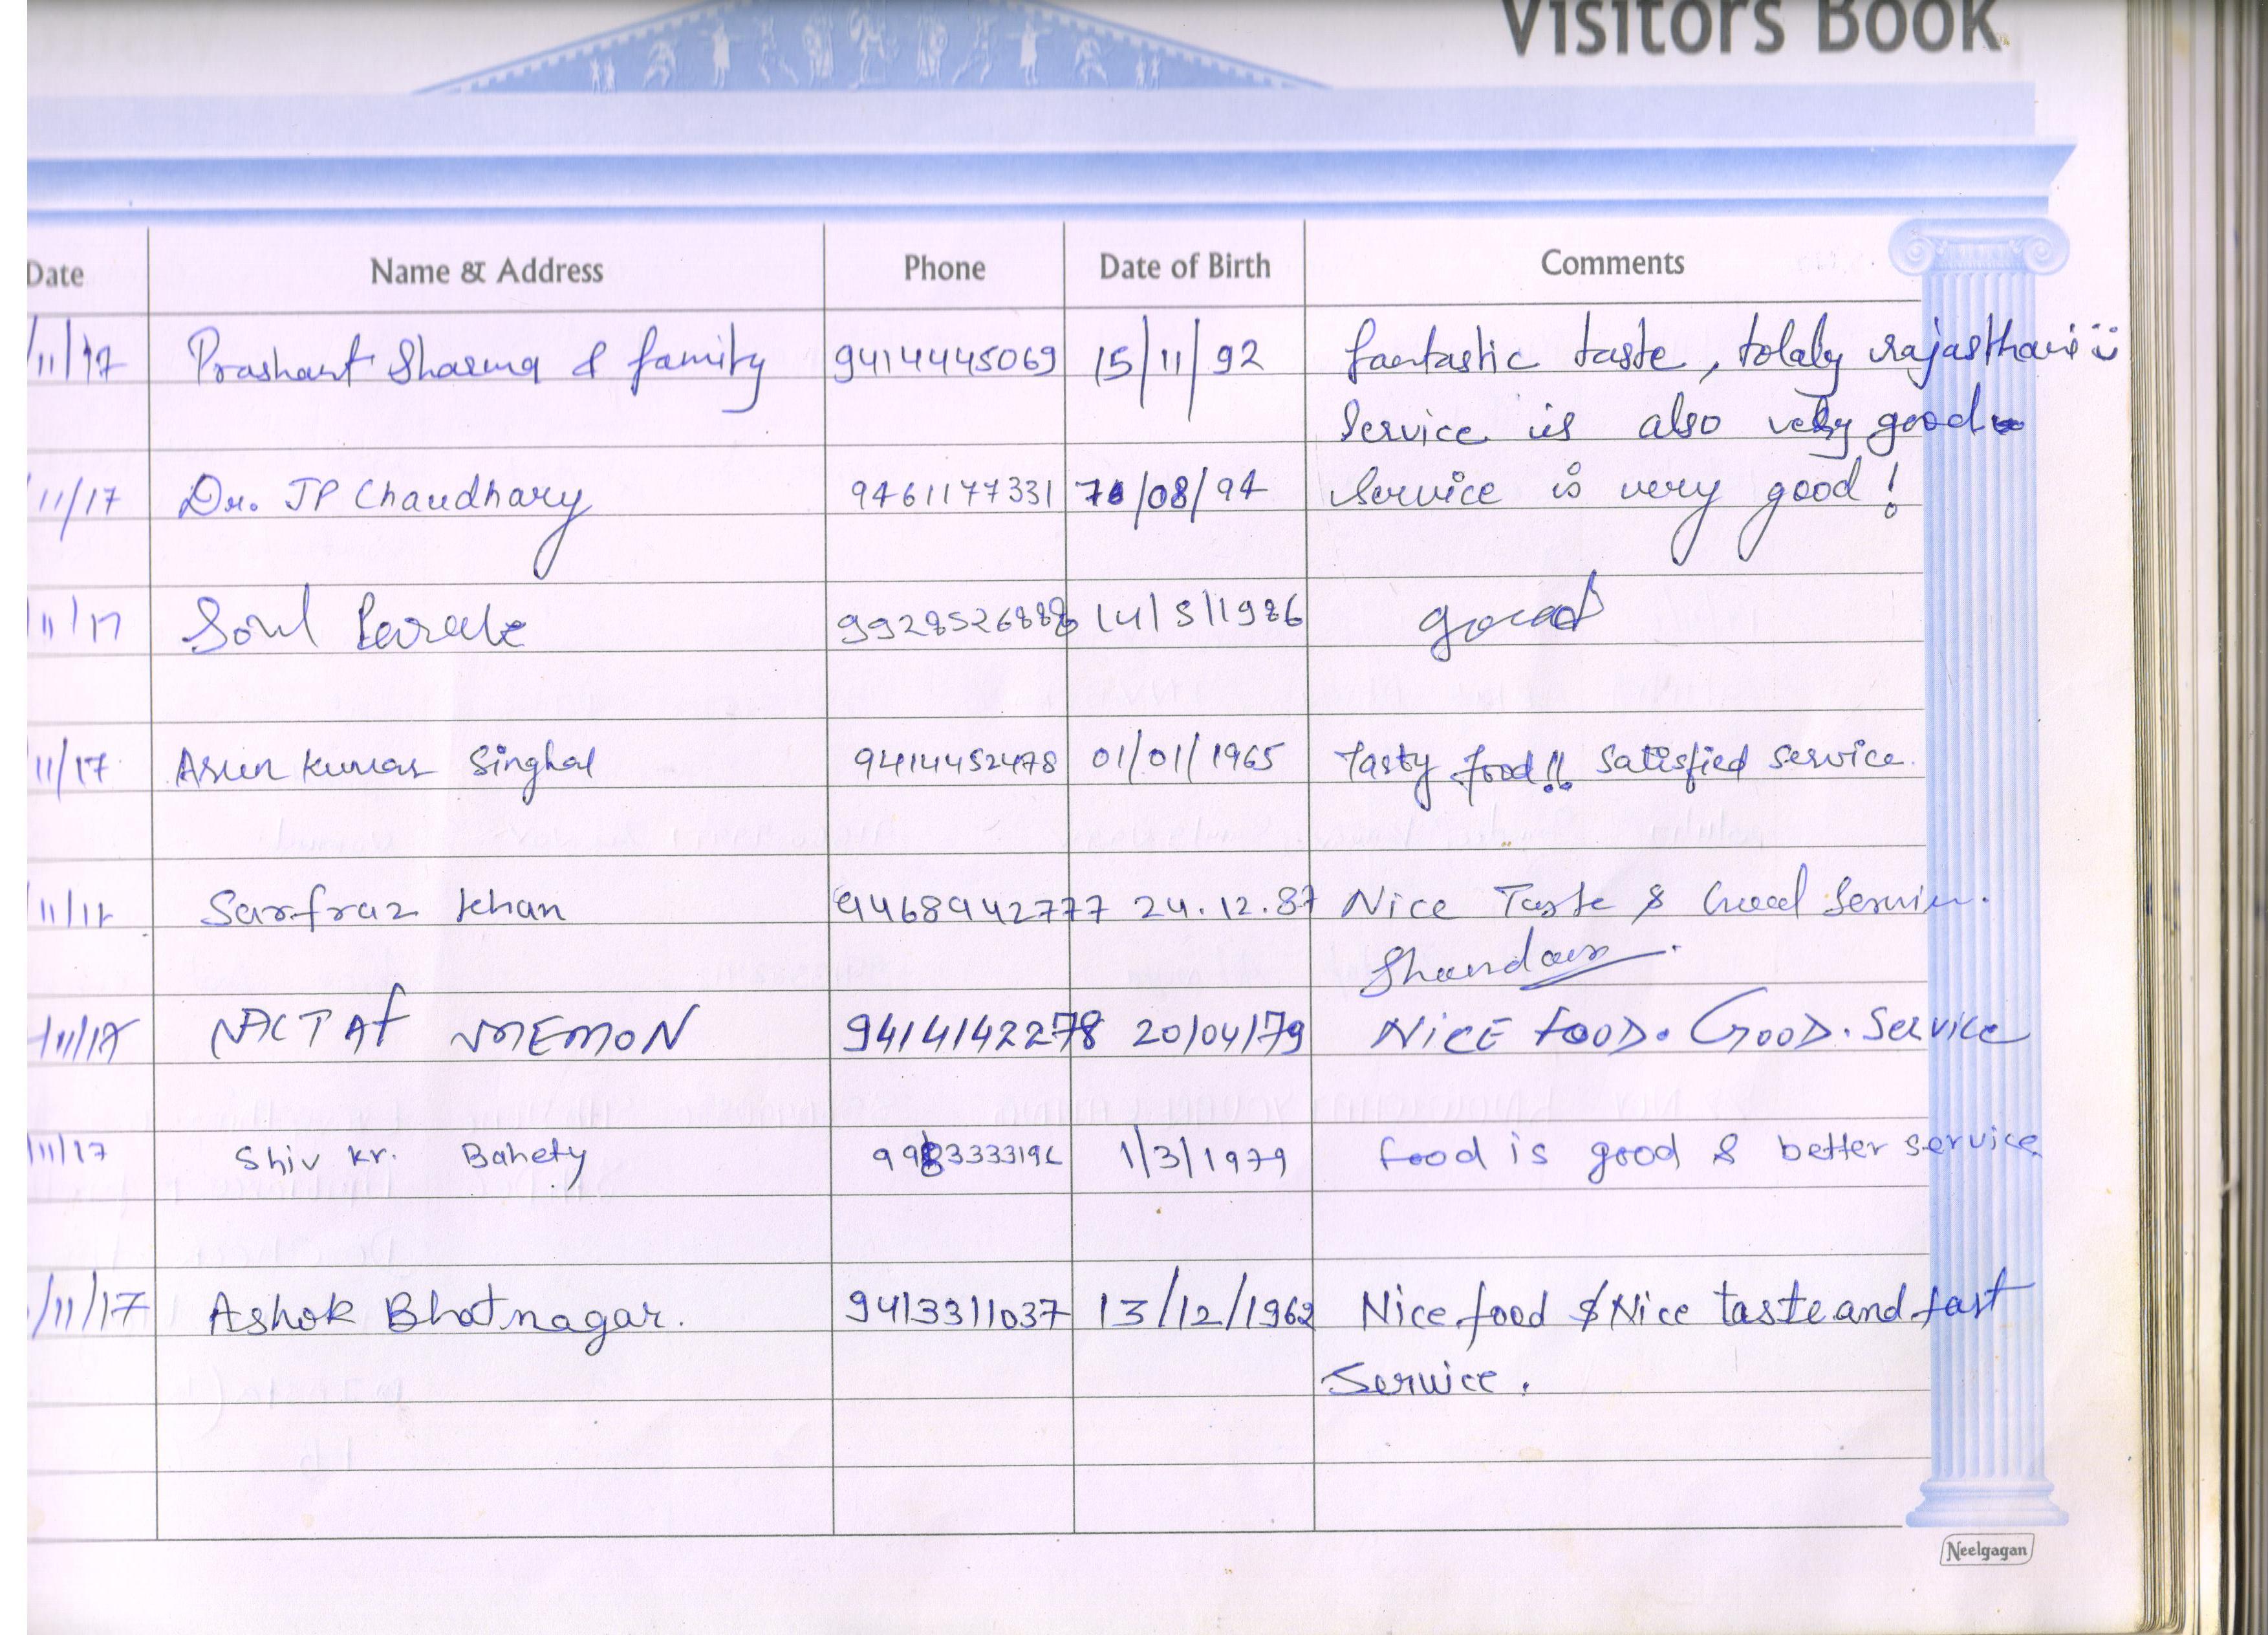 Visitors Book
Date Name & Address Phone Date of Birth Comments
/11/17 Prashant Sharma & family 9414445069 15/11/92 fantastic taste, tolaly rajasthani
Service is also very good
/11/17 Dr. JP Chaudhary 9461177331 /08/94 Service is very good!
/11/17 9928526888 14/5/1986 good
11/17 Arun Kumar Singhal 9414452478 01/01/1965 Tasty food!! Satisfied service.
11/17 Sarfraz Khan 9468942777 24.12.87 Nice Taste & Good Service.
Shandar
/11/17 MEMON 9414142278 20/04/79 NICE FOOD. GOOD. Service
/11/17 Shiv Kr. Bahety 9983333196 1/3/1979 food is good & better service
/11/17 Ashok Bhatnagar. 9413311037 13/12/1962 Nice food & Nice taste and fast
Service.
Neelgagan